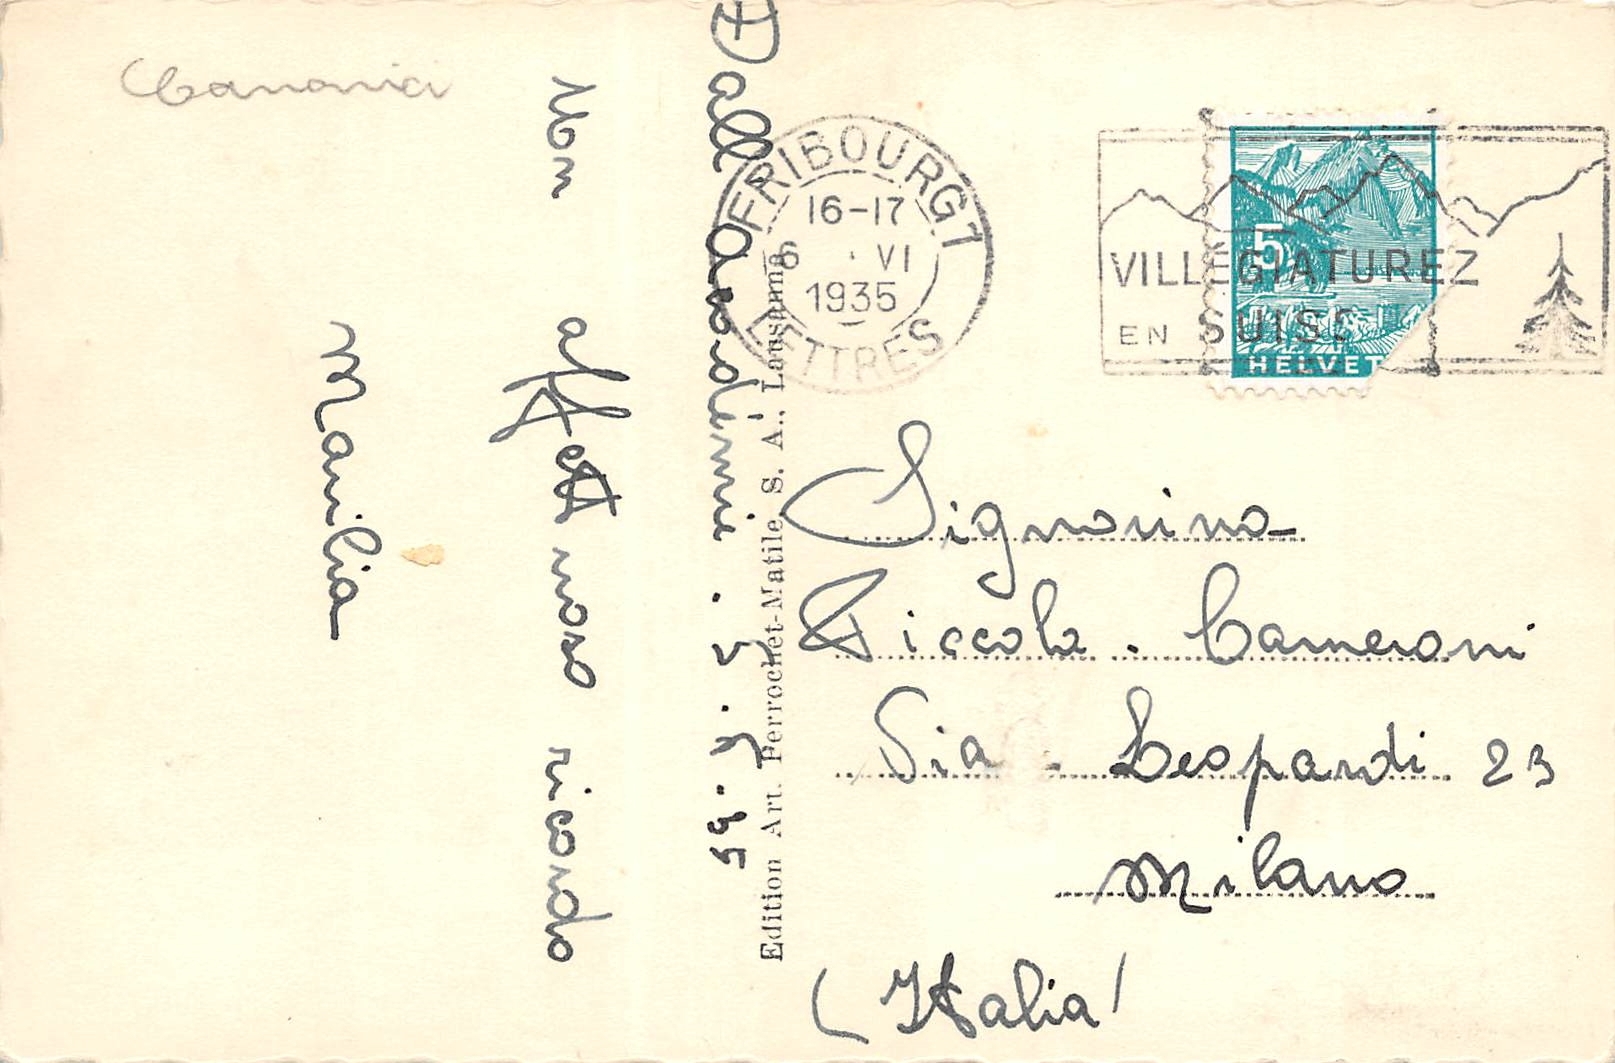 Canonici
Dall'Accademia
Un affettuoso ricordo
Manilia
Edition Art. Perrochet-Matile S. A., Lausanne
FRIBOURG 1
16-17
6 . VI
1935
LETTRES
VILLÉGIATUREZ
EN SUISSE
5
HELVET
Signorina
Piccola . Cameroni
Via . Leopardi 23
Milano
(Italia)